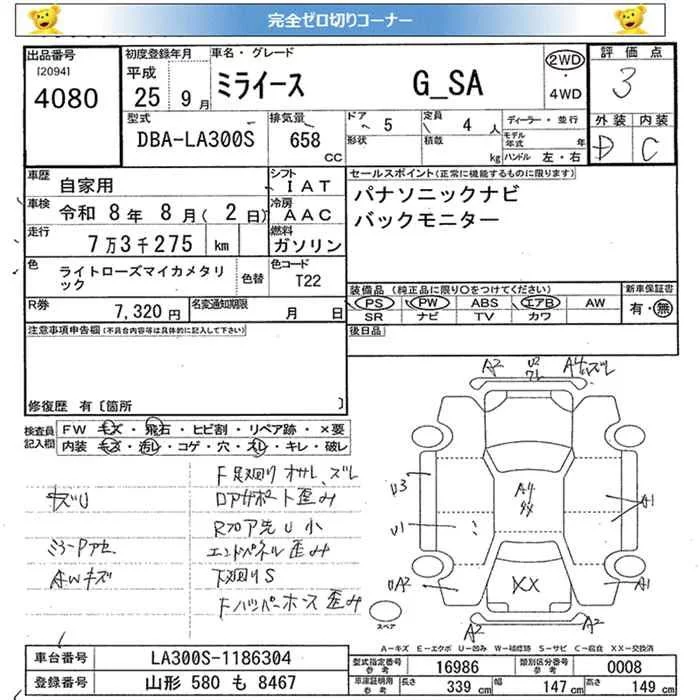 完全ゼロ切りコーナー
出品番号 初度登録年月 車名・グレード 評価点
[2094] 平成 ミライース G_SA 2WD 3
4080 25年9月 ・4WD
型式 排気量 ドア 5 定員 4人 ディーラー・並行 外装 内装
DBA-LA300S 658CC 形状 積載 kg モデル年式 年 D C
ハンドル 左・右
車歴 自家用 シフト IAT セールスポイント(正常に機能するものに限ります)
車検 令和 8年 8月( 2日) 冷房 AAC パナソニックナビ
走行 7万3千275 km 燃料 ガソリン バックモニター
色 ライトローズマイカメタリック 色替 色コード T22
装備品(純正品に限り○をつけてください) 新車保証書
R券 7,320円 名変通知期限 月 日 PS PW ABS エアB AW 有・無
SR ナビ TV カワ
注意事項申告欄(不具合内容等は具体的に記入して下さい) 後日品
修復歴 有[箇所 ]
検査員記入欄 FW キズ・飛石・ヒビ割・リペア跡・×要
内装 キズ・汚レ・コゲ・穴・スレ・キレ・破レ
F足廻り オサレ、ズレ
ロアサポート歪み
Rフロア先U小
エンドパネル歪み
AWキズ 下廻りS
A2 U2 ワレ A4 ズレ
U3 A4 A1
U1
UA2 XX A1
A2 A2
スペア
A-キズ E-エクボ U-凹み W-補修跡 S-サビ C-腐食 XX-交換済
車台番号 LA300S-1186304 型式指定番号 参考 16986 類別区分番号 参考 0008
登録番号 山形 580 も 8467 車庫証明用 参考 長さ 339 cm 幅 147 cm 高さ 149 cm